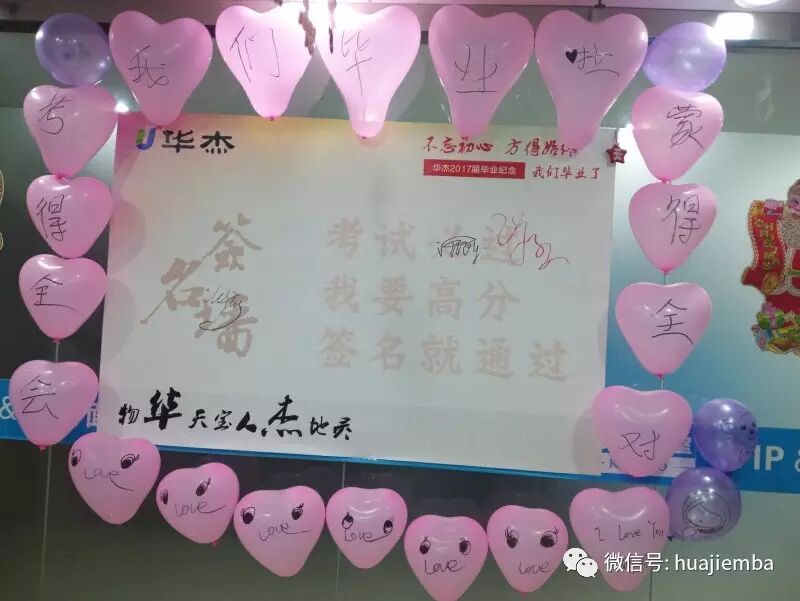 我们毕业啦
考得全会
蒙得全对
华杰
不忘初心 方得始终
华杰2017届毕业纪念
我们毕业了
簽名墙
考试必过
我要高分
签名就通过
物华天宝人杰地灵
Love
Love
Love
Love
Love
Love
I Love You
&
IP &
微信号: huajiemba